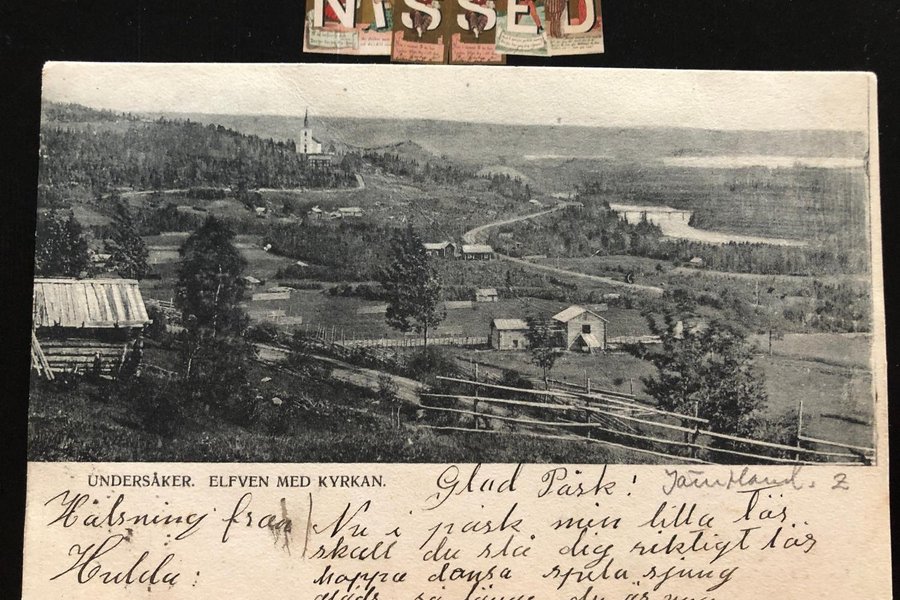 NISSED
UNDERSÅKER. ELFVEN MED KYRKAN.
Glad Påsk!
Jämtland. Z
Hälsning från
Hulda:
Nu i påsk min lilla tös
skall du slå dig riktigt lös
hoppa dansa spela sjung
gläds så länge du är ung